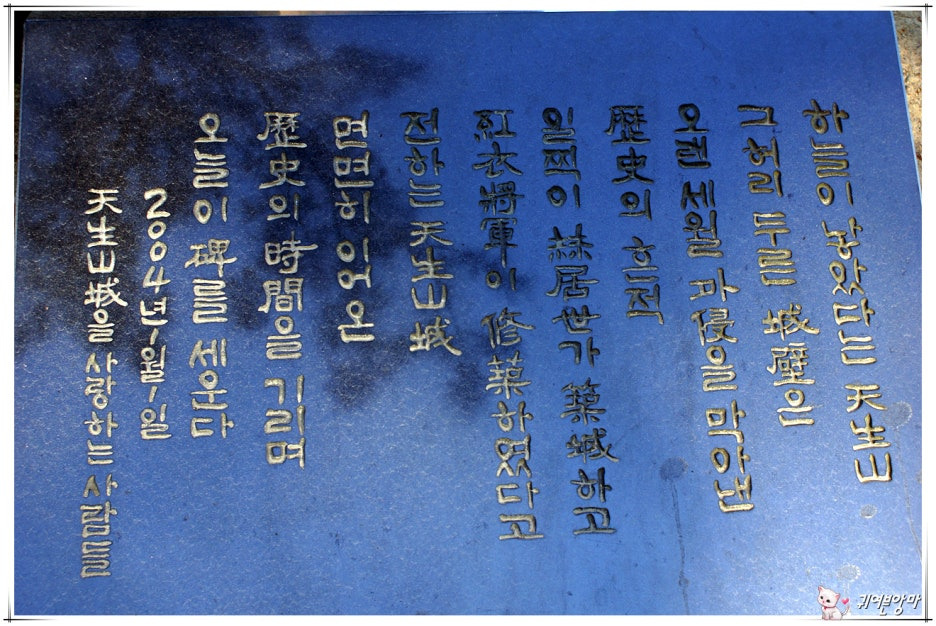 하늘이 낳았다는 天生山
그 허리 두른 城壁은
오랜 세월 外侵을 막아낸
歷史의 흔적
일찍이 赫居世가 築城하고
紅衣將軍이 修築하였다고
전하는 天生山城
면면히 이어온
歷史의 時間을 기리며
오늘 이 碑를 세운다
2004년 1월 1일
天生山城을 사랑하는 사람들
귀여븐앙마